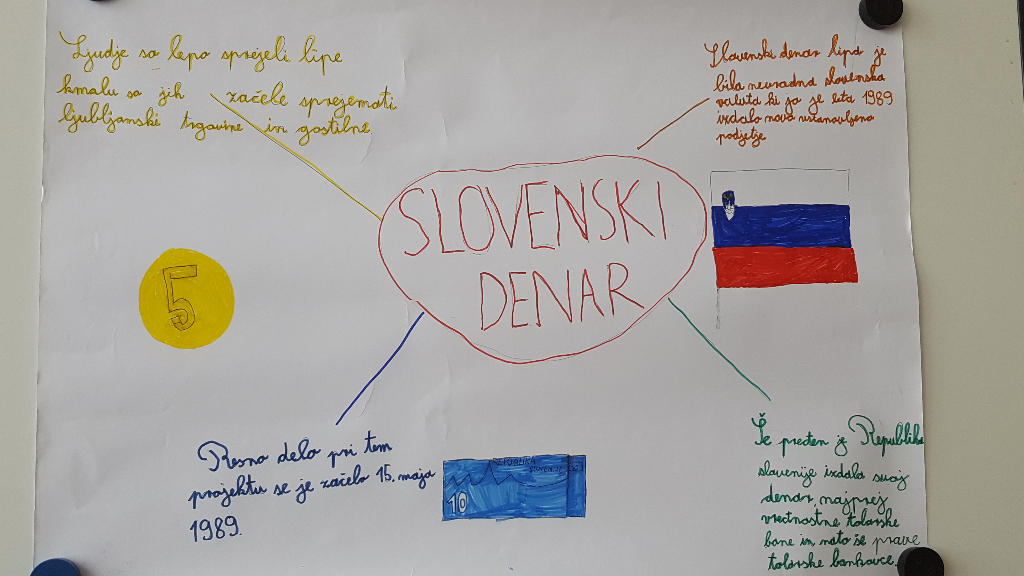 Ljudje so lepo sprejeli lipe
kmalu so jih začele sprejemati
ljubljanski trgovine in gostilne
Slovenski denar lipa je
bila neuradna slovenska
valuta ki jo je leta 1989
izdalo novo ustanovljeno
podjetje
SLOVENSKI
DENAR
5
Resno delo pri tem
projektu se je začelo 15. maja
1989.
10
Še preden je Republika
slovenije izdala svoj
denar, najprej
vrednostne tolarske
bone in nato še prave
tolarske bankovce.